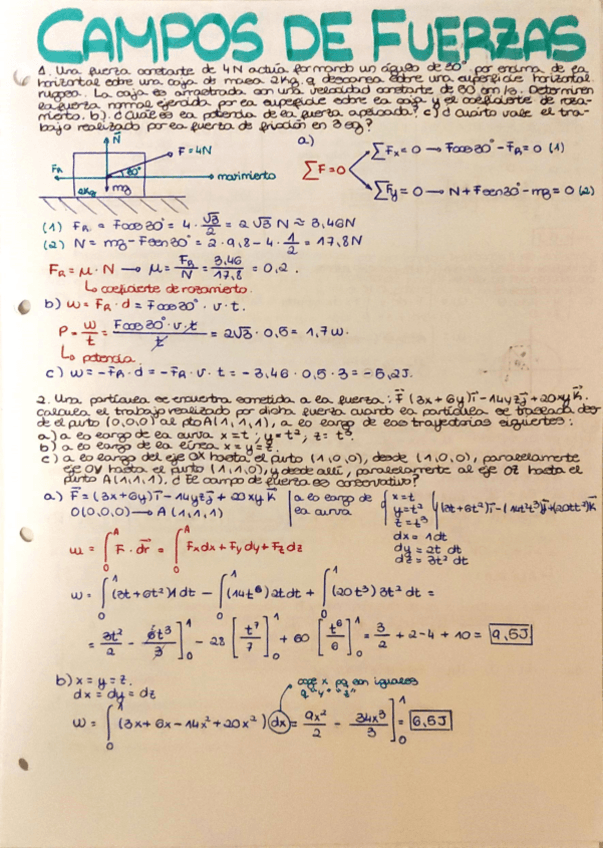 CAMPOS DE FUERZAS
1. Una fuerza constante de 4N actúa formando un ángulo de 30° por encima de la
horizontal sobre una caja de masa 2Kg. q descansa sobre una superficie horizontal
rugosa. La caja es arrastrada con una velocidad constante de 50 cm/s. Determinen
la fuerza normal ejercida por la superficie sobre la caja y el coeficiente de roza-
miento. b) ¿Cuál es la potencia de la fuerza aplicada? c) ¿Cuánto vale el tra-
bajo realizado por la fuerza de fricción en 3 sg?
N
F = 4N
30°
FR
movimiento
2Kg
mg
a)
∑F = 0
∑Fx = 0 → Fcos30° - FR = 0 (1)
∑Fy = 0 → N + Fsen30° - mg = 0 (2)
(1) FR = Fcos30° = 4 · √3/2 = 2√3 N ≈ 3,46N
(2) N = mg - Fsen30° = 2 · 9,8 - 4 · 1/2 = 17,8N
FR = μ · N → μ = FR/N = 3,46/17,8 = 0,2.
↳ coeficiente de rozamiento.
b) W = FR · d = Fcos30° · v · t.
P = W/t = Fcos30° · v · t/t = 2√3 · 0,5 = 1,7w.
↳ potencia.
c) W = -FR · d = -FR · v · t = -3,46 · 0,5 · 3 = -5,2J.
2. Una partícula se encuentra sometida a la fuerza: F (3x + 6y)i - 14yzj + 20xyk.
Calcula el trabajo realizado por dicha fuerza cuando la partícula se traslada des-
de el punto (0,0,0) al pto A(1,1,1), a lo largo de las trayectorias siguientes:
a) a lo largo de la curva x = t ; y = t², z = t³.
b) a lo largo de la línea x = y = z.
c) a lo largo del eje OX hasta el punto (1,0,0), desde (1,0,0), paralelamente
eje OY hasta el punto (1,1,0), y desde allí, paralelamente al eje OZ hasta el
punto A(1,1,1). ¿Este campo de fuerza es conservativo?
a) F = (3x + 6y)i - 14yzj + 20xyk
O(0,0,0) → A(1,1,1)
a lo largo de
la curva
x = t
y = t²
z = t³
(3t + 6t²)i - (14t²t³)j + (20tt²)k
dx = 1dt
dy = 2t dt
dz = 3t² dt
W = ∫₀ᴬ F · dr = ∫₀ᴬ Fx dx + Fy dy + Fz dz
W = ∫₀¹ (3t + 6t²)1 dt - ∫₀¹ (14t⁵) 2t dt + ∫₀¹ (20t³) 3t² dt =
= 3t²/2 - 6t³/3 ]₀¹ - 28 [t⁷/7]₀¹ + 60 [t⁶/6]₀¹ = 3/2 + 2 - 4 + 10 = 9,5J
b) x = y = z.
dx = dy = dz
coge x pq son iguales
q "y" "z"
W = ∫₀¹ (3x + 6x - 14x² + 20x²) dx = 9x²/2 - 34x³/3 ]₀¹ = 6,5J